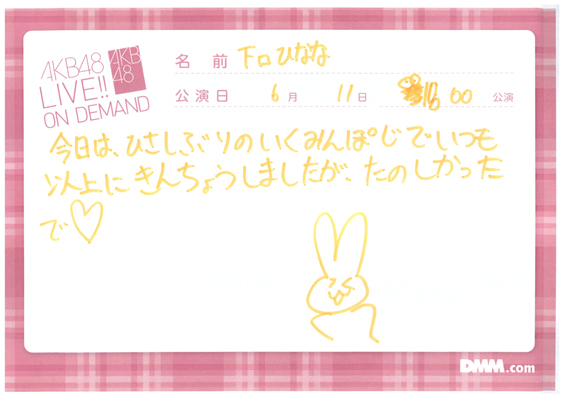 AKB48
LIVE!!
ON DEMAND
AKB
48
名 前 下口ひなな
公演日 6月 11日 18:00 公演
今日は、ひさしぶりのいくみんぽじでいつも
以上にきんちょうしましたが、たのしかった
で♡
DMM.com